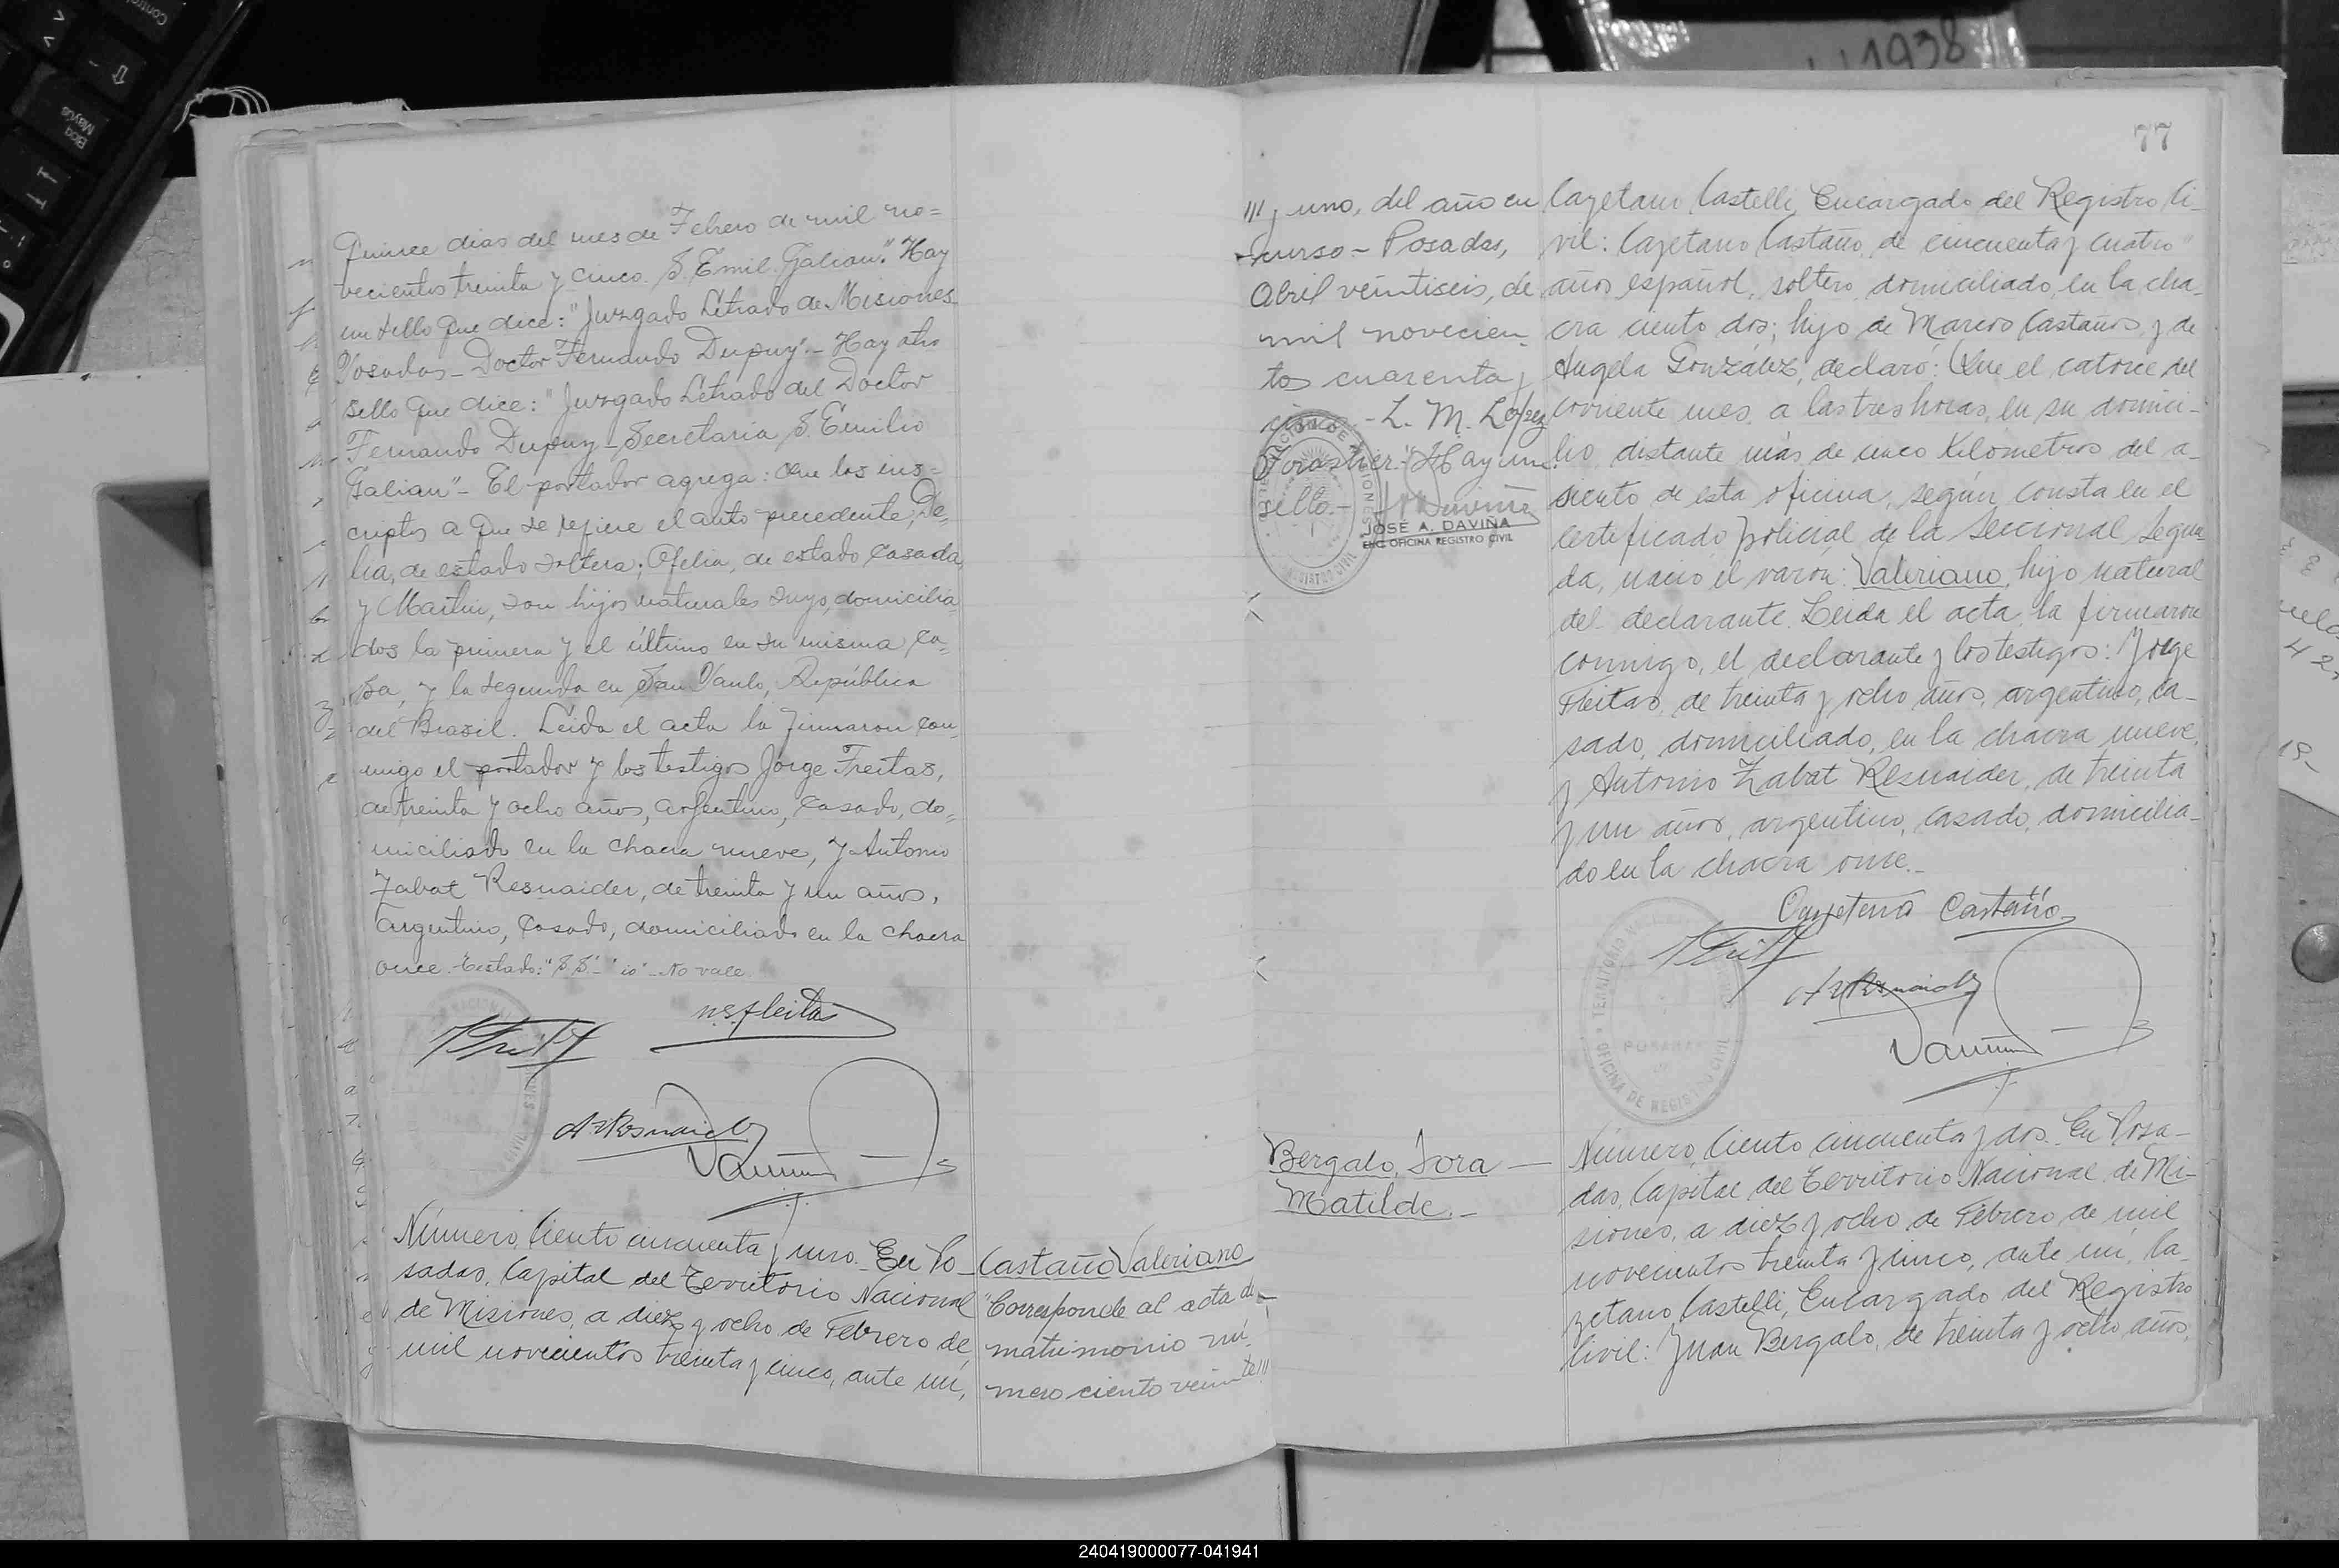 Quince dias del mes de Febrero de mil no=
vecientos treinta y cinco. S. Emil. Galian". Hay
un sello que dice: "Juzgado Letrado de Misiones
Posadas - Doctor Fernando Dupuy". - Hay otro
sello que dice: "Juzgado Letrado del Doctor
Fernando Dupuy - Secretaria S. Emilio
Galian" - El portador agrega: Que los ins=
criptos a que se refiere el auto precedente, De=
lia, de estado soltera; Ofelia, de estado casada,
y Martin, son hijos naturales suyos, domicilia
dos la primera y el último en su misma ca=
sa, y la segunda en San Paulo, República
del Brasil. Leida el acta la firmaron con=
migo el portador y los testigos Jorge Freitas,
de treinta y ocho años, argentino, casado, do=
miciliado en la chacra nueve, y Antonio
Zabat Resnaider, de treinta y un años,
argentino, casado, domiciliado en la chacra
once. Testado: "S.S." - "io" - No vale.
Número, Ciento cincuenta y uno. En Po-
sadas, Capital del Territorio Nacional
de Misiones, a diez y ocho de Febrero de
mil novecientos treinta y cinco, ante mi,
Castaño Valeriano
"Corresponde al acta de
matrimonio nú-
mero ciento veinte///
77
/// y uno, del año en
curso - Posadas,
Abril veintiseis, de
mil novecien
tos cuarenta y
- L. M. López
Hay un
sello. -
JOSÉ A. DAVIÑA
ENC. OFICINA REGISTRO CIVIL
Cayetano Castelli, Encargado del Registro Ci-
vil: Cayetano Castaño, de cincuenta y cuatro
años, español, soltero, domiciliado, en la cha-
cra ciento dos; hijo de Marcos Castaños, y de
Angela González, declaró: Que el catorce del
corriente mes, a las tres horas, en su domici-
lio, distante más de cinco Kilometros del a-
siento de esta oficina, según consta en el
certificado policial de la Seccional Segun
da, nació el varón: Valeriano, hijo natural
del declarante. Leida el acta, la firmaron
conmigo, el declarante y los testigos: Jorge
Freitas, de treinta y ocho años, argentino, ca-
sado, domiciliado, en la chacra nueve,
y Antonio Zabat Resnaider, de treinta
y un años, argentino, casado, domicilia-
do en la chacra once. -
Cayetano Castaño
Bergalo, Dora
Matilde. -
Número, Ciento cincuenta y dos. En Posa-
das, Capital del Territorio Nacional de Mi-
siones, a diez y ocho de Febrero de mil
novecientos treinta y cinco, ante mi, Ca-
yetano Castelli, Encargado del Registro
Civil: Juan Bergalo, de treinta y ocho años,
1938
240419000077-041941